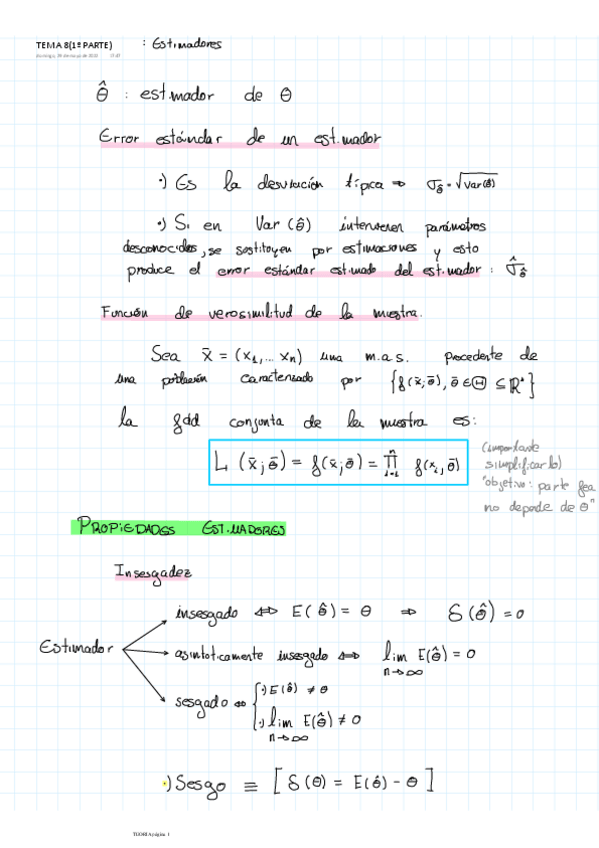 TEMA 8(1ª PARTE) : Estimadores
domingo, 29 de mayo de 2022 17:47
θ̂ : estimador de θ
Error estándar de un estimador
·) Es la desviación típica ⇒ σ_θ̂ = √Var(θ̂)
·) Si en Var (θ̂) intervienen parámetros
desconocidos, se sustituyen por estimaciones y esto
produce el error estándar estimado del estimador : σ̂_θ̂
Función de verosimilitud de la muestra.
Sea x̄ = (x₁,... xₙ) una m.a.s. procedente de
una población caracterizada por {f(x̄;θ̄), θ̄ ∈ Θ ⊆ ℝᵏ}
la fdd conjunta de la muestra es:
L (x̄;θ̄) = f(x̄;θ̄) = ∏ⁿᵢ₌₁ f(xᵢ,θ̄)
(importante
simplificarlo)
"objetivo: parte fea
no depende de θ"
PROPIEDADES ESTIMADORES
Insesgadez
insesgado ⇔ E(θ̂) = θ ⇒ δ(θ̂) = 0
Estimador
asintóticamente insesgado ⇔ lim E(θ̂) = 0
n→∞
sesgado ⇔ { ·) E(θ̂) ≠ θ
·) lim E(θ̂) ≠ 0
n→∞
·) Sesgo ≡ [ δ(θ) = E(θ̂) - θ ]
TEORÍA página 1